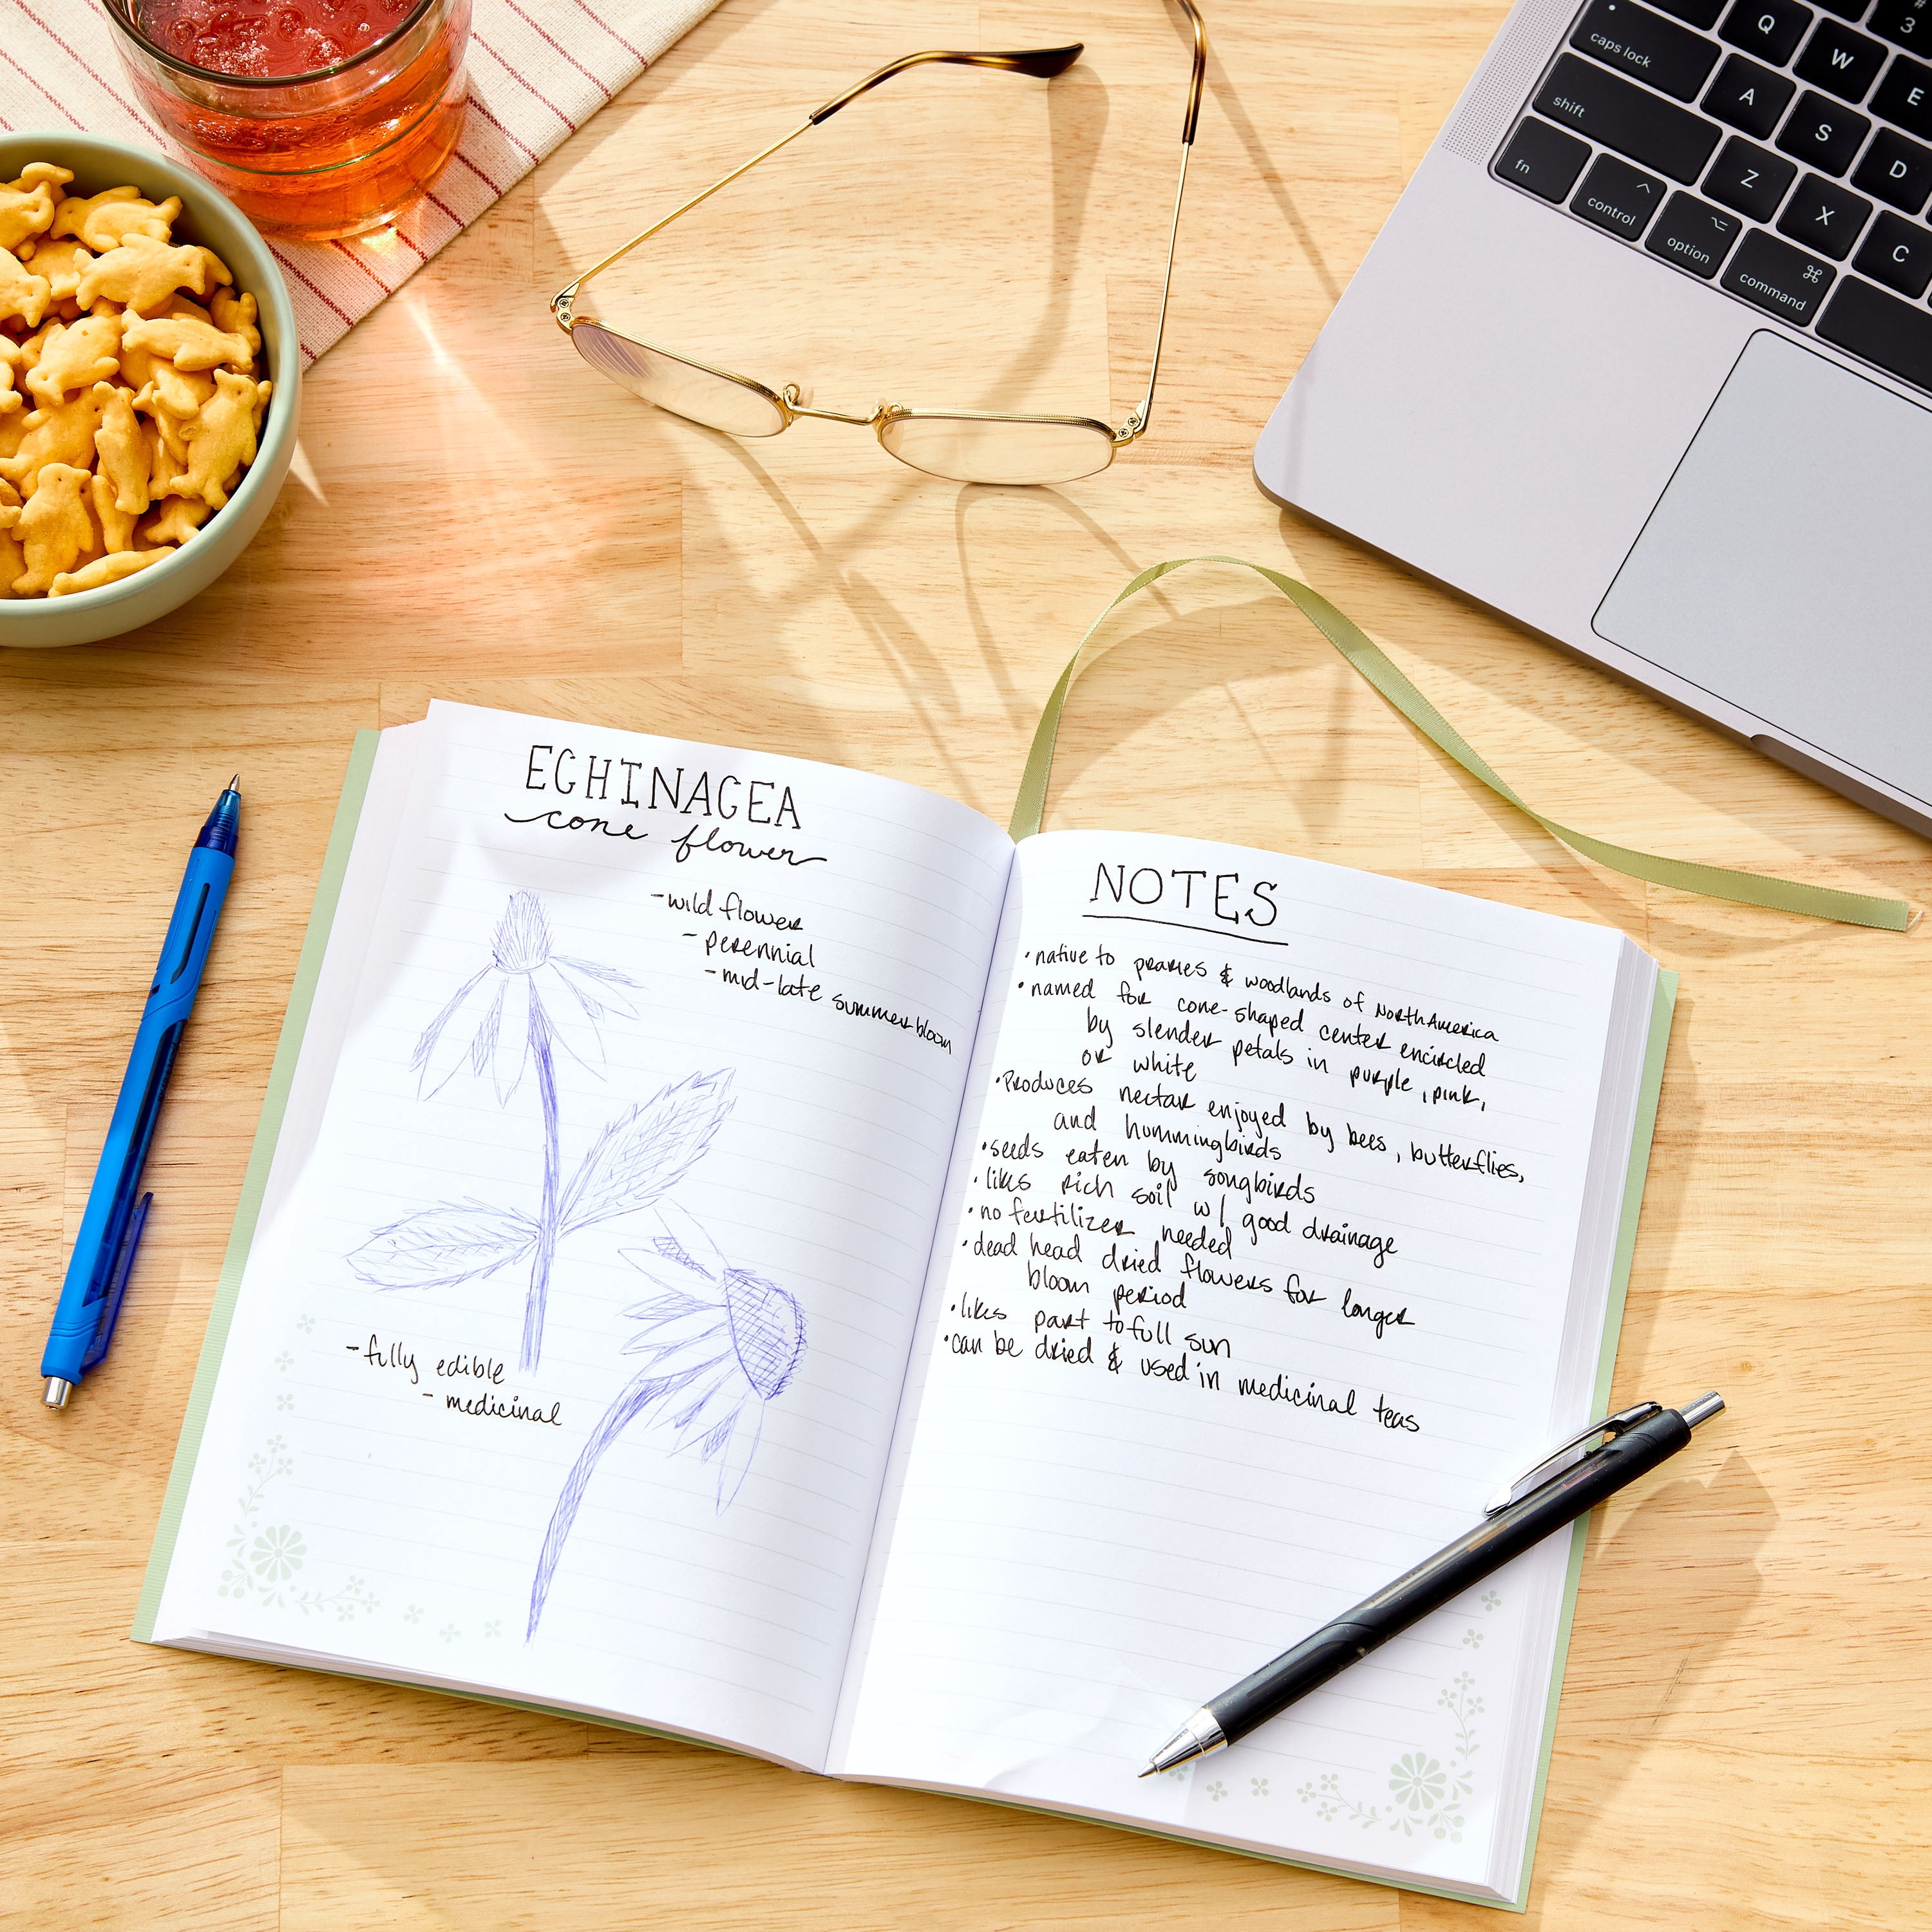 # 3
Q W E
caps lock A S D
shift Z X C
fn control option command
ECHINACEA
cone flower
-wild flower
- perennial
- mid-late summer bloom
- fully edible
- medicinal
NOTES
• native to praries & woodlands of North America
• named for cone-shaped center encircled
by slender petals in purple, pink,
or white
• Produces nectar enjoyed by bees, butterflies,
and hummingbirds
• seeds eaten by songbirds
• likes rich soil w/ good drainage
• no fertilizer needed
• dead head dried flowers for longer
bloom period
• likes part to full sun
• can be dried & used in medicinal teas